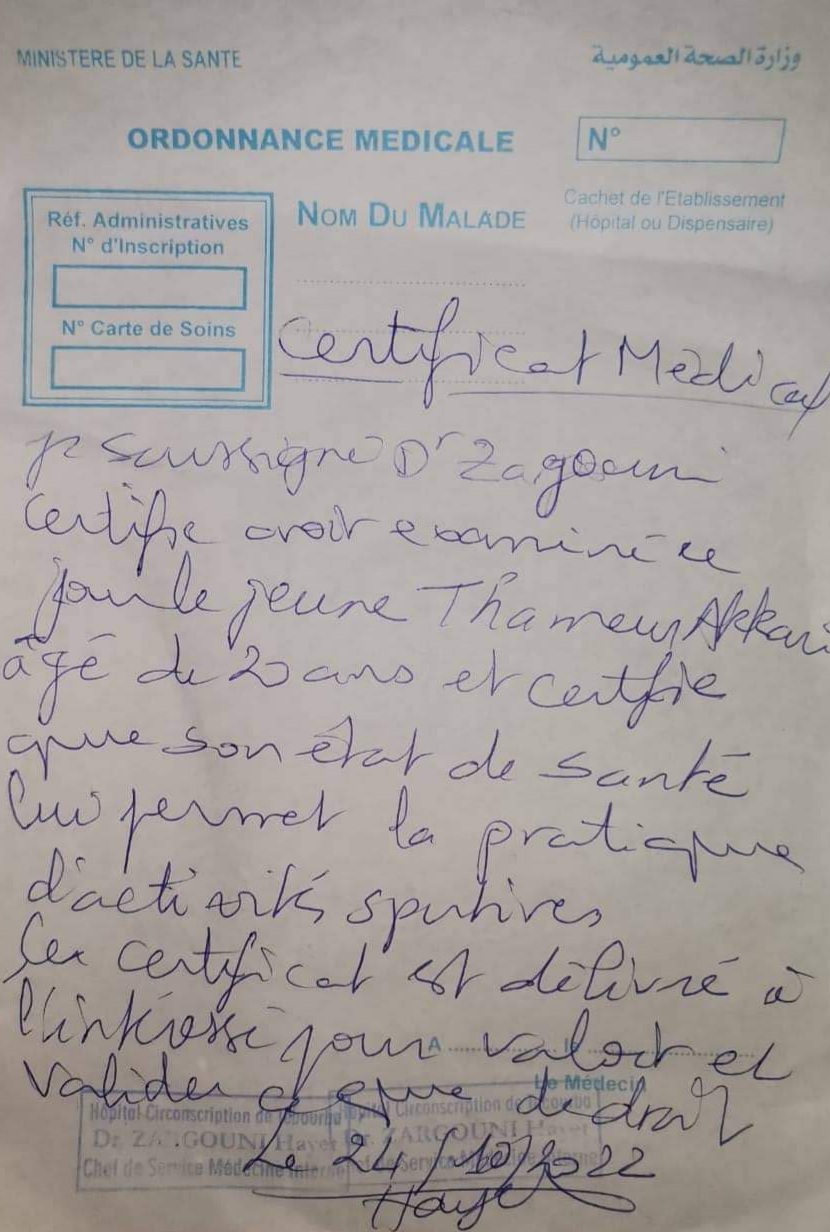 MINISTERE DE LA SANTE
وزارة الصحة العمومية
ORDONNANCE MEDICALE
N°
Réf. Administratives
N° d'Inscription
N° Carte de Soins
NOM DU MALADE
Cachet de l'Etablissement
(Hôpital ou Dispensaire)
Certificat Médical
je soussigné Dr Zagouni
certifie avoir examiné ce
jour le jeune Thameur Akkari
âgé de 20 ans et certifie
que son état de santé
lui permet la pratique
d'activités sportives
certificat est délivré à
l'intéressé pour valoir et
A
valider ce que de droit
Le Médecin
Hôpital Circonscription de
Dr. ZARGOUNI Hayet
Chef de Service Médecine Interne
Circonscription de
ZARGOUNI
de Service
Le 24/10/2022
Hayet